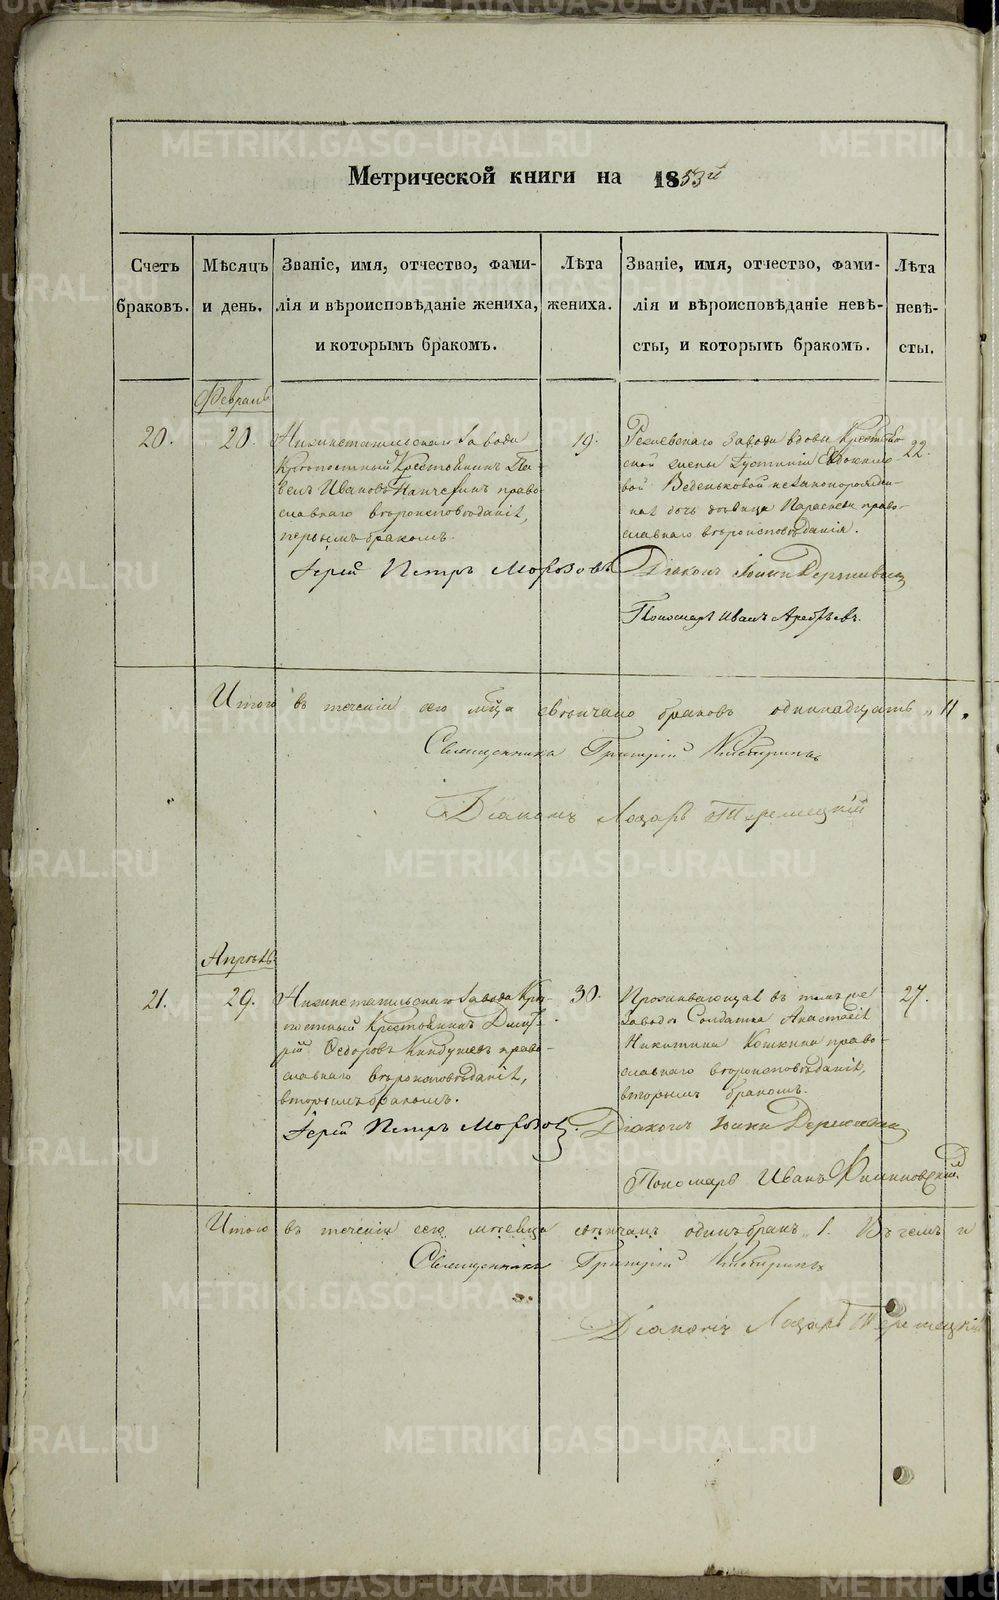 Метрической книги на 1853й
Счетъ браковъ.
Мѣсяцъ и день.
Званіе, имя, отчество, фами-
лія и вѣроисповѣданіе жениха,
и которымъ бракомъ.
Лѣта жениха.
Званіе, имя, отчество, фами-
лія и вѣроисповѣданіе невѣ-
сты, и которымъ бракомъ.
Лѣта невѣ-
сты.
Февраль
20.
20.
Нижнетагильскаго Завода
Крѣпостный Крестьянинъ Па-
велъ Ивановъ право-
славнаго вѣроисповѣданія,
первымъ бракомъ.
19.
Завода вдовы Крестьян-
ской жены Евдокимо-
вой Веденьковой незаконорожден-
ная дочь дѣвица Параскева право-
славнаго вѣроисповѣданія.
22.
Іерей Петръ Морозовъ
Діаконъ
Пономарь Иванъ
Итого въ теченіи сего м̃ца свѣнчано браковъ одинадцать „11„
Священника Григорій
Діаконъ Лазарь
Апрѣль
21.
29.
Нижнетагильскаго Завода Крѣ-
постный Крестьянинъ Дмит-
рій Ѳедоровъ право-
славнаго вѣроисповѣданія,
вторымъ бракомъ.
30.
Проживающая въ томъ же
Заводѣ Солдатка Анастасія
Никитина Кошкина право-
славнаго вѣроисповѣданія,
вторымъ бракомъ.
27.
Іерей Петръ Морозовъ.
Діаконъ
Пономарь Иванъ Филиповскій
Итого въ теченіи сего мѣсяца свѣнчанъ одинъ бракъ „1. Въ чемъ и
Священника Григорій
Діаконъ Лазарь
METRIKI.GASO-URAL.RU